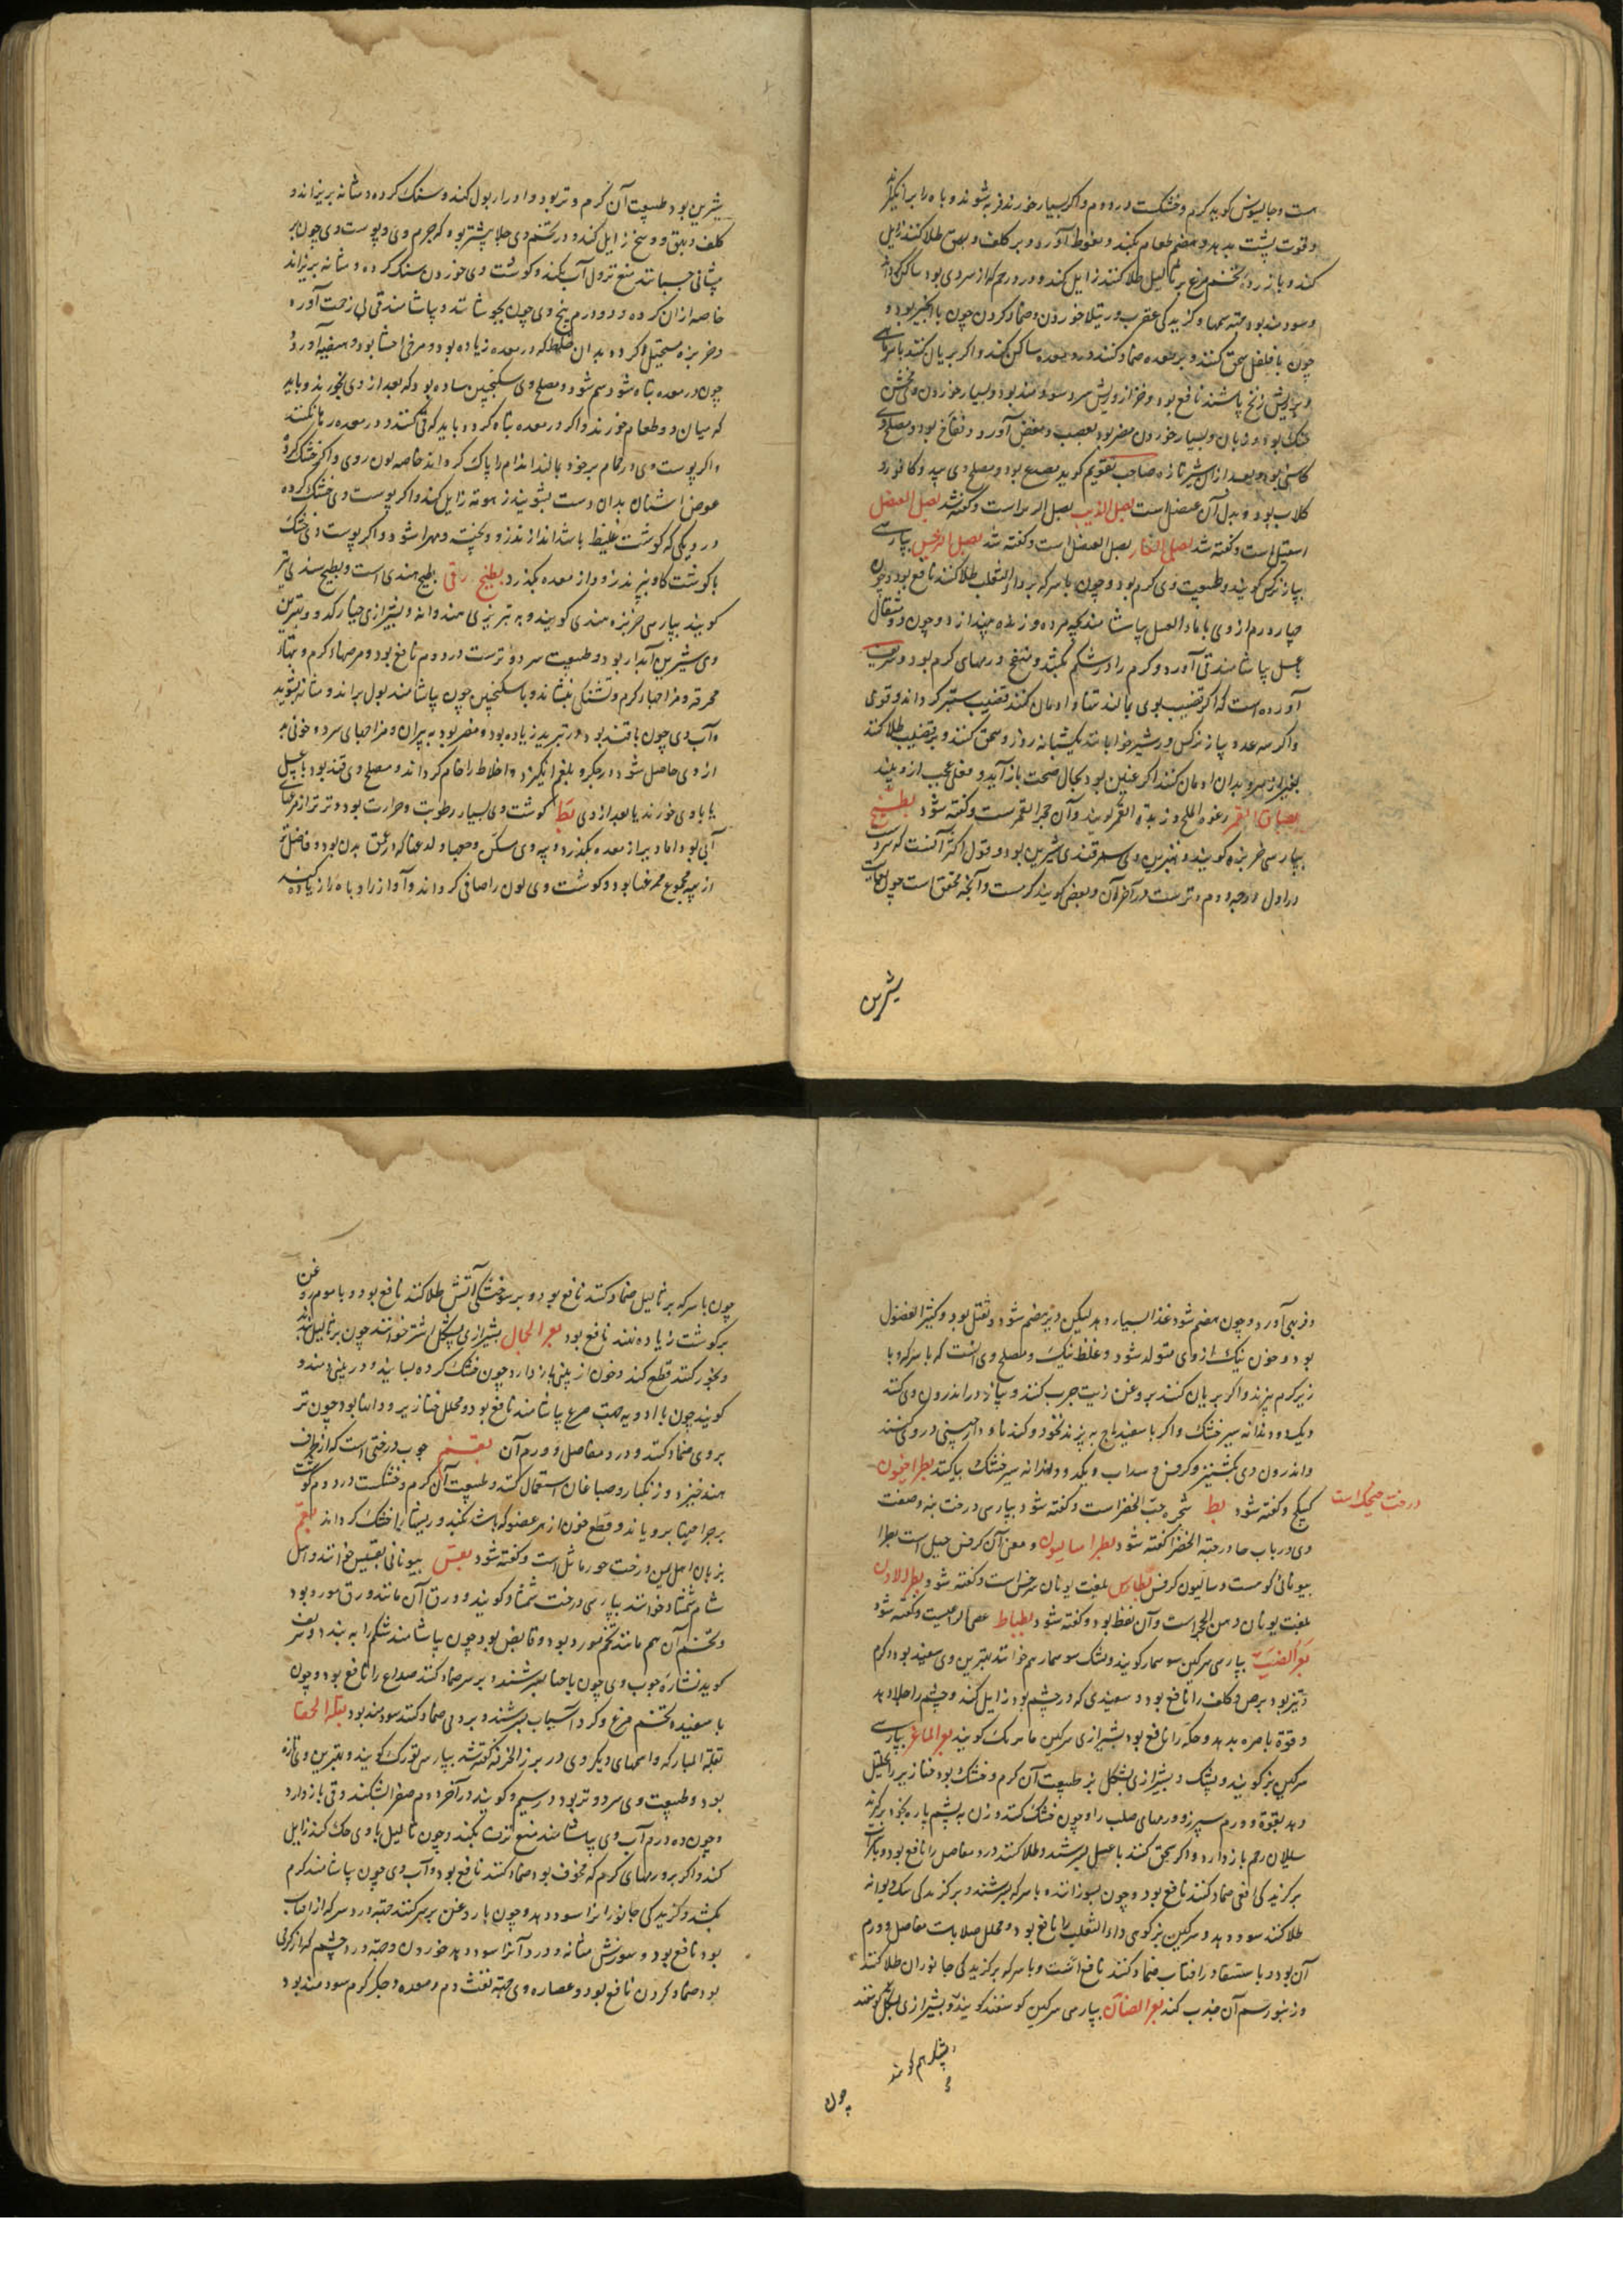 است و جالینوس کوید کرم و خشکست در دوم و اکر بسیار خورند فربه شوند و باه را برانکیزد
و قوت پشت بدهد و هضم طعام بکند و نعوظ آورد و بر کلف و بهق طلا کنند زایل
کند و با زرده تخم مرغ بر ثالیل طلا کنند زایل کند و درد رحم که از سردی بود ساکن کرداند
و سودمند بود جهة سمها و کزیدکی عقرب و رتیلا خوردن و ضماد کردن چون با انجیر بود و
چون با فلفل سحق کنند و بر معده ضماد کنند درد معده ساکن کند و اکر بریان کنند با
و بر ریش زنخ پاشند نافع بود و سودمند بود و بسیار خوردن وی
خشک بود و زبان و بسیار خوردن مضر بود بعصب و مغص آورد و نفاخ بود و مصلح وی
کاسنی بود و بعد از آن شیر تازه صاحب تقویم کوید مصدع بود و مصلح وی سپید و کافور و
کلاب بود و بدل آن عنصل است بصل الذیب بصل الزیر است و کفته شد بصل العنصل
اسقیل است و کفته شد بصل الفار بصل العنصل است و کفته شد بصل النرجس بپارسی
پیاز نرکس کویند و طبیعت وی کرم بود و چون با سرکه بر داء الثعلب طلا کنند نافع بود و چون
چهار درم از وی با ماء العسل بیاشامند بچه مرده و زنده بیندازد و چون دو مثقال
با عسل بیاشامند قی آورد و کرم را در شکم بکشد و منضج ورمهای کرم بود و شریف
آورده است که اکر قضیب بوی بمالند تنها و ادمان کنند قضیب ستبر کرداند و قوی
و اکر سه عدد پیاز نرکس در شیر خوابانند یکشبانه روز و سحق کنند و بر قضیب طلا کنند
بغیر از سر و بدان ادمان کنند اکر عنین بود بحال صحت باز آید و فعلی عجب از و بیند
بصاق القمر رغوه الملح و زبد القمر کویند و آن حجر القمر است و کفته شود بطیخ
بپارسی خربزه کویند و بهترین وی سمرقندی شیرین بود و قول اکثر آنست که سرد است
در اول درجه دوم و ترست در آخر آن و بعضی کویند کرمست و آنچه محقق است چون بغایت
شیرین
شیرین بود طبیعت آن کرم و تر بود و ادرار بول کند و سنک کرده و مثانه بریزاند و
کلف و بهق و وسخ زایل کند و در تخم وی جلا بیشتر بود که جرم وی و پوست وی چون بر
پیشانی چسبانند منع نزول آب بکند و کوشت وی خوردن سنک کرده و مثانه بریزاند
خاصه از ان کرده و دو درم بیخ وی چون بجوشانند و بیاشامند قی بی زحمت آورد
و خربزه مستحیل کردد بدان خلط که در معده زیاده بود و مرخی احشا بود و هیضه آورد و
چون در معده تباه شود سم شود و مصلح وی سکنجبین ساده بود که بعد از وی بخورند و باید
که میان دو طعام خورند و اکر در معده تباه کردد باید که قی کنند و در معده رها نکنند
و اکر پوست وی در حمام بر خود بمالند اندام را پاک کرداند خاصه لون روی و اکر خشک کرده
عوض اشنان بدان دست بشویند زهومه زایل کند و اکر پوست وی خشک کرده
در دیکی که کوشت غلیظ باشد اندازند زود بپخته و مهرا شود و اکر پوست وی خشک
با کوشت کاو بپزند زود از معده بکذرد بطیخ رقی بطیخ هندی است و بطیخ سندی نیز
کویند بپارسی خربزه هندی کویند و به تبریزی هندوانه و بشیرازی خیار کدو و بهترین
وی شیرین آبدار بود و طبیعت سرد و ترست در دوم نافع بود و مرضهاء کرم و تبهاء
محرقه و مزاجهاء کرم و تشنکی بنشاند و با سکنجبین چون بیاشامند بول براند و مثانه بشوید
و آب وی چون با قند بود در تبرید زیاده بود و مضر بود به پیران و مزاجهای سرد و خونی
از وی حاصل شود در جکر و بلغم انکیزد و اخلاط را خام کرداند و مصلح وی قند بود یا عسل
یا با وی خورند یا بعد از وی بط کوشت وی بسیار رطوبت و حرارت بود و ترتر از مرغهای
آبی بود اما دیر از معده بکذرد و پیه وی مسکن وجعها و لدعها که در عمق بدن بود و فاضلترین
از پیه مجموع مرغها بود و کوشت وی لون را صافی کرداند و آواز را و باه را زیاده کند
و فربهی آورد و چون هضم شود غذا بسیار دهد لیکن دیر هضم شود و ثقیل بود و کثیر الفضول
بود و خون نیک از وی متولد شود و غلظ نیک و مصلح وی آنست که با سرکه و با
زیره کرم بپزند و اکر بریان کنند بروغن زیت چرب کنند و پیاز در اندرون وی کنند
و یک دو دندانه سیر خشک و اکر با سفیدباج بپزند نخود و کندنا و دارچینی در وی کنند
و اندرون وی بکشنیز و کرفس و سداب و یک دو دندانه سیر خشک بیاکنند بطراخیون
کبیکج و کفته شود بط شجره حب الخضر است و کفته شود و بپارسی درخت بنه و صفت
درخت حبک است
وی در باب حا در حبة الخضرا کفته شود بطراسالیون و معنی آن کرفس جبلی است بطرا
بیونانی کوهست و سالیون کرفس بطارس بلغت یونان سرخس است و کفته شود بطرالاون
بلغت یونان دهن الحجر است و آن نفط بود و کفته شود بطباط عصی الراعیست و کفته شود
بعر الضب بپارسی سرکین سوسمار کویند و پشک سوسمار هم خوانند بهترین وی سفید بود و کرم
و تیز بود برص و کلف را نافع بود و سفیدی که در چشم بود زایل کند و چشم را جلا دهد
و قوة باصره بدهد و حکه را نافع بود بشیرازی سرکین مارمک کویند بعر الماعز بپارسی
سرکین بز کویند و پشک و بشیرازی پشکل بز طبیعت آن کرم و خشک بود خنازیر را تحلیل
دهد بقوة و ورم سپرز و ورمهای صلب را و چون خشک کنند و زن به پشم پاره بخود برکیرد
سیلان رحم باز دارد و اکر سحق کنند با عسل بسرشند و طلا کنند درد مفاصل را نافع بود و با شراب
بر کزیدکی افعی ضماد کنند نافع بود و چون بسوزانند و با سرکه بسرشند و بر کزیدکی سک دیوانه
طلا کنند سود دهد و سرکین بز کوهی داء الثعلب را نافع بود و محلل صلابات مفاصل و ورم
آن بود و با استسقا در آفتاب ضماد کنند نافع است و با سرکه بر کزیدکی جانوران طلا کنند
و زنبور سم آن جذب کند بعر الضأن بپارسی سرکین کوسفند کویند و بشیرازی پشکل کوسفند
و پشکر هم کویند
چون
چون با سرکه بر ثالیل ضماد کنند نافع بود و بر سوختکی آتش طلا کنند نافع بود و با موم روغن
بر کوشت زیاده نهند نافع بود بعر الجمال بشیرازی پشکل اشتر خوانند چون بر ثالیل نهند
و بخور کنند قطع کند و خون از بینی باز دارد چون خشک کرده بسایند و در بینی دمند و
کویند چون با ادویه جهت صرع بیاشامند نافع بود و محلل خنازیر و دانها بود چون تر
بروی ضماد کنند و درد مفاصل و ورم آن بقم چوب درختی است که از طرف
هند خیزد و زنکبار و صباغان استعمال کنند و طبیعت آن کرم و خشکست در دوم کوشت
بر جراحتها برویاند و قطع خون از هر عضو که باشد بکند و ریشها را خشک کرداند بقم
بزبان اهل یمن درخت جوز ماثل است و کفته شود بقس بیونانی بقسیس خوانند و اهل
شام شمشاد خوانند بپارسی درخت شمشاد کویند و ورق آن مانند ورق مورد بود
و تخم آن هم مانند تخم مورد بود و قابض بود چون بیاشامند شکم را به بندد و شریف
کوید نشاره چوب وی چون با حنا بسرشند و بر سر ضماد کنند صداع را نافع بود و چون
با سفیده تخم مرغ و کرد آسیاب بسرشند و بر وی ضماد کنند سودمند بود بقلة الحمقا
بقلة المبارکه و اسمهای دیکر وی در بزر الخرفه کفته شد بپارسی تورک کویند و بهترین وی تازه
بود و طبیعت وی سرد و تر بود در سیم و کویند در آخر دوم صفرا بشکند و قی باز دارد
و چون ده درم آب وی بیاشامند منع نزف بکند و چون ثالیل با وی حک کنند زایل
کند و اکر بر ورمهای کرم که مخوف بود ضماد کنند نافع بود و آب وی چون بیاشامند کرم
بکشد و کزیدکی جانوران را سود دهد و چون با روغن بر سر کنند جهة درد سر که از آفتاب
بود نافع بود و سوزش مثانه و درد آنرا سود دهد خوردن و جهة درد چشم که از کرمی
بود ضماد کردن نافع بود و عصاره وی جهة نفث دم و معده و جکر کرم سودمند بود